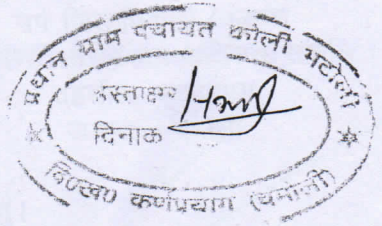 प्रधान ग्राम पंचायत कोली भटोली
हस्ताक्षर
दिनाक
वि०ख० कर्णप्रयाग (चमोली)